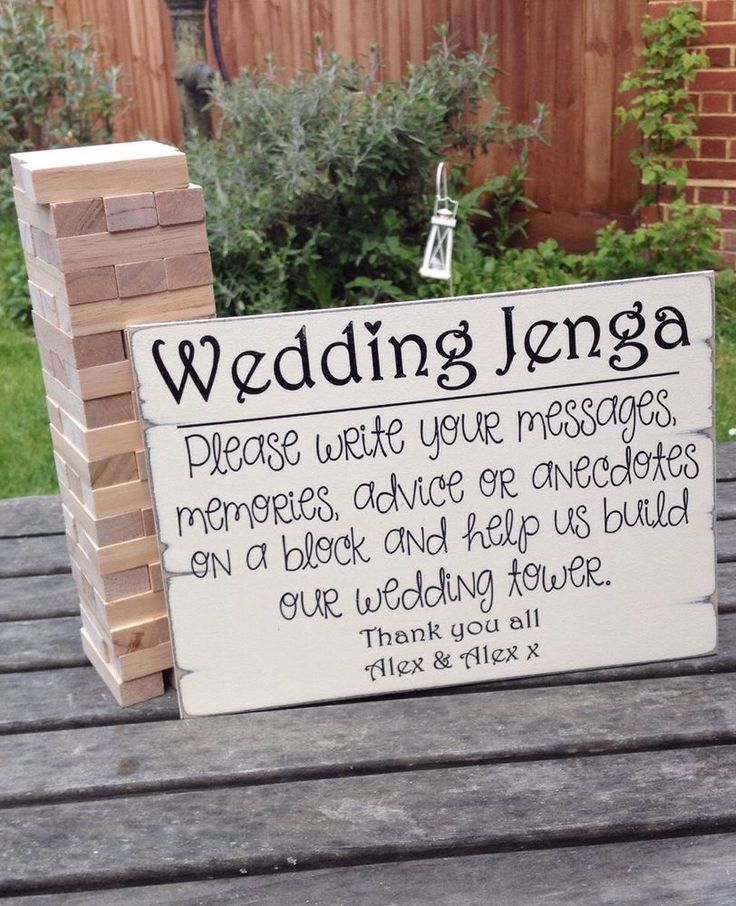 Wedding Jenga
Please write your messages,
memories, advice or anecdotes
on a block and help us build
our wedding tower.
Thank you all
Alex & Alex x